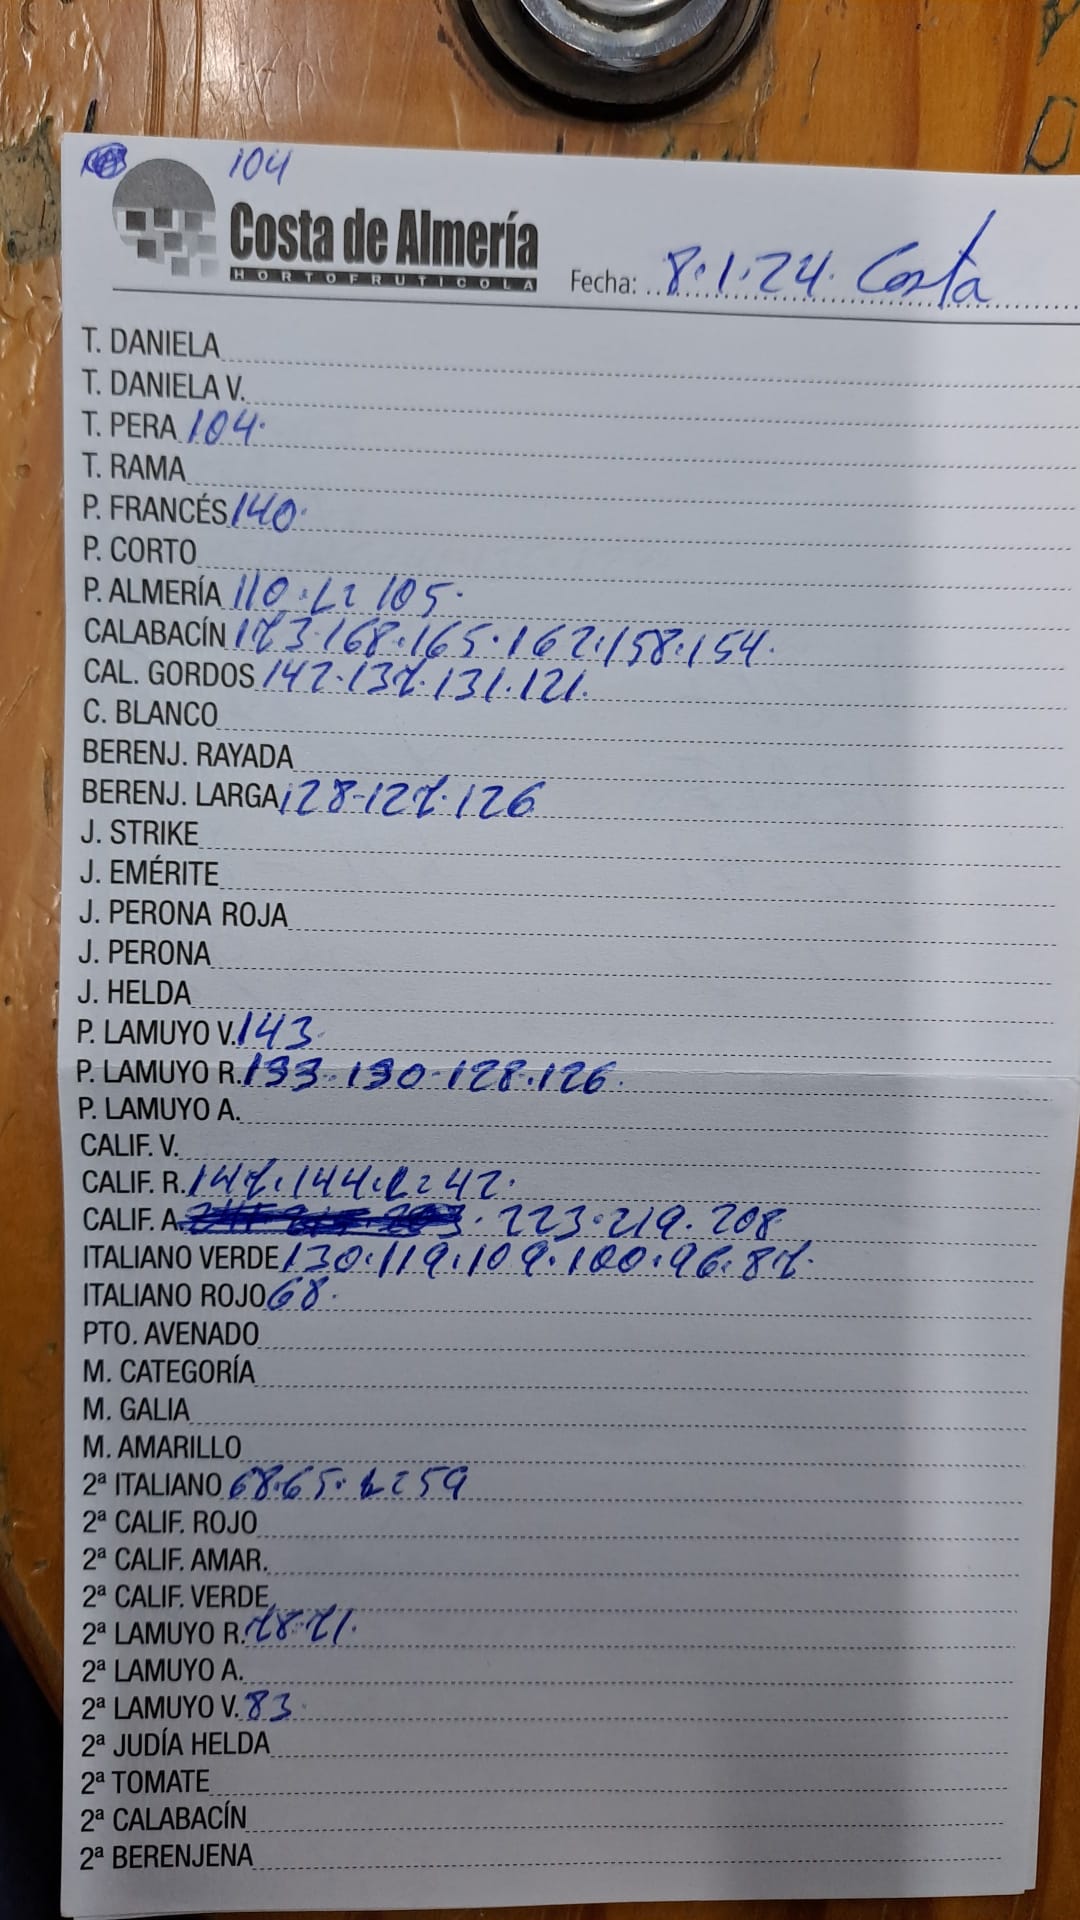 104
Costa de Almería
HORTOFRUTICOLA
Fecha: 8.1.24. Costa
T. DANIELA
T. DANIELA V.
T. PERA 104.
T. RAMA
P. FRANCÉS 140.
P. CORTO
P. ALMERÍA 110.L2 105.
CALABACÍN 173.168.165.162.158.154.
CAL. GORDOS 142.137.131.121.
C. BLANCO
BERENJ. RAYADA
BERENJ. LARGA 128-127.126
J. STRIKE
J. EMÉRITE
J. PERONA ROJA
J. PERONA
J. HELDA
P. LAMUYO V. 143.
P. LAMUYO R. 133.130-128.126.
P. LAMUYO A.
CALIF. V.
CALIF. R. 147.144.L2 42.
CALIF. A. 223.219.208
ITALIANO VERDE 130.119.109.100.96.87.
ITALIANO ROJO 68.
PTO. AVENADO
M. CATEGORÍA
M. GALIA
M. AMARILLO
2ª ITALIANO 68.65. L2 59
2ª CALIF. ROJO
2ª CALIF. AMAR.
2ª CALIF. VERDE
2ª LAMUYO R. 78-71.
2ª LAMUYO A.
2ª LAMUYO V. 83.
2ª JUDÍA HELDA
2ª TOMATE
2ª CALABACÍN
2ª BERENJENA